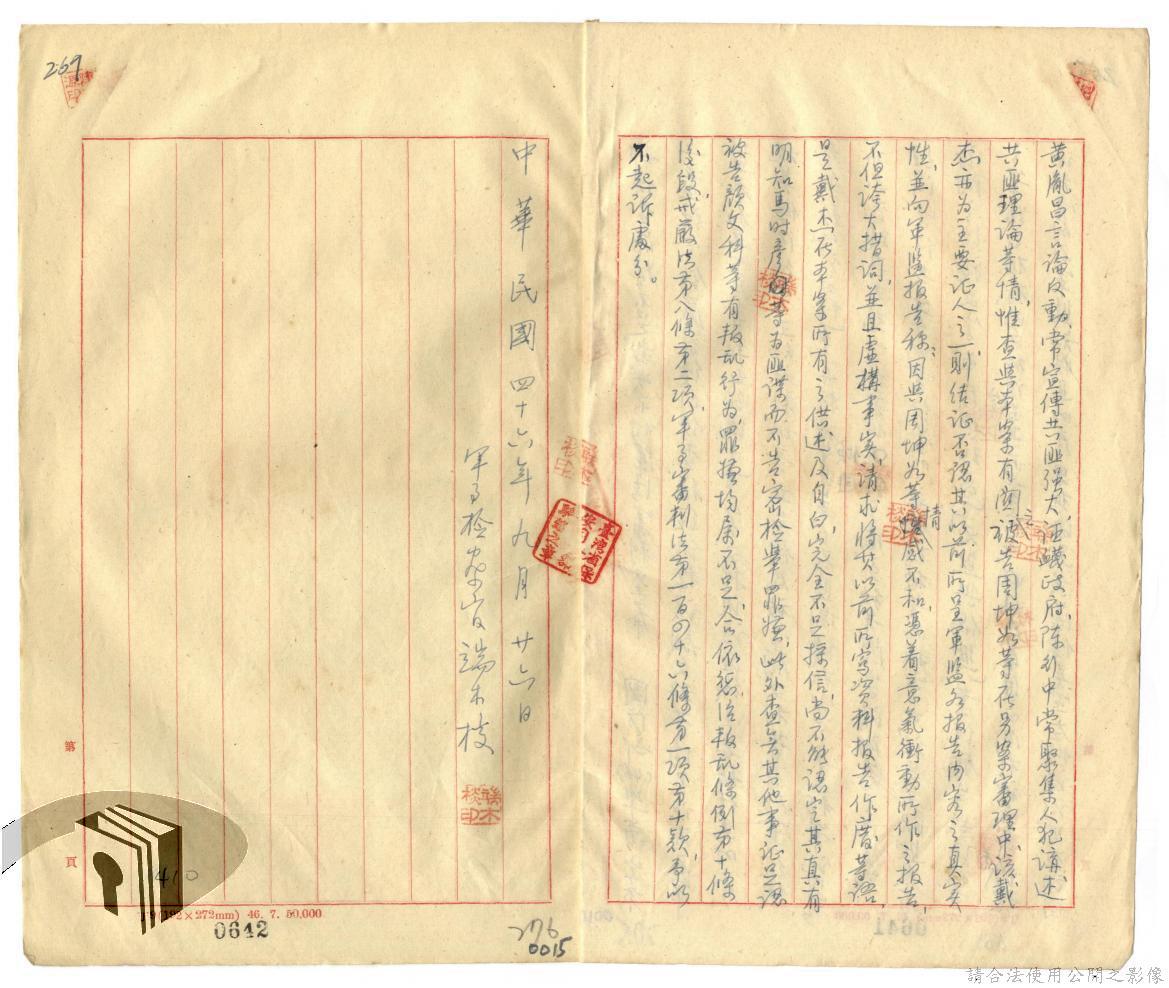 黃胤昌言論反動、常宣傳共匪强大、誣衊政府、陳行中常聚集人犯講述
共匪理論等情、惟查與本案有関之被告周坤如等在另案審理中、該戴
杰亦為主要証人之一、則結証否認其以前所呈軍監各報告內容之真实
性、並向軍監报告称：因與周坤如等情感不和、憑着意氣衝動所作之报告、
不但誇大措詞、並且虛構事实、請求將其以前所寫資料报告作廢等語、
是戴杰在本案所有之供述及自白、完全不足採信、尚不能認定其真有
明知馬时彥等為匪諜而不告密檢舉罪嫌、此外查無其他事証足認
被告顏文科等有叛乱行為、罪嫌均屬不足、合依懲治叛乱條例第十條
後段、戒嚴法第八條第二項、軍事審判法第一百四十六條第一項第十款、予以
不起訴處分。
中華民國四十六年九月廿六日
軍事檢察官端木棪
端木棪印
269
第 頁
410
(192×272mm) 46. 7. 50,000
0642
276
0015
0641
請合法使用公開之影像